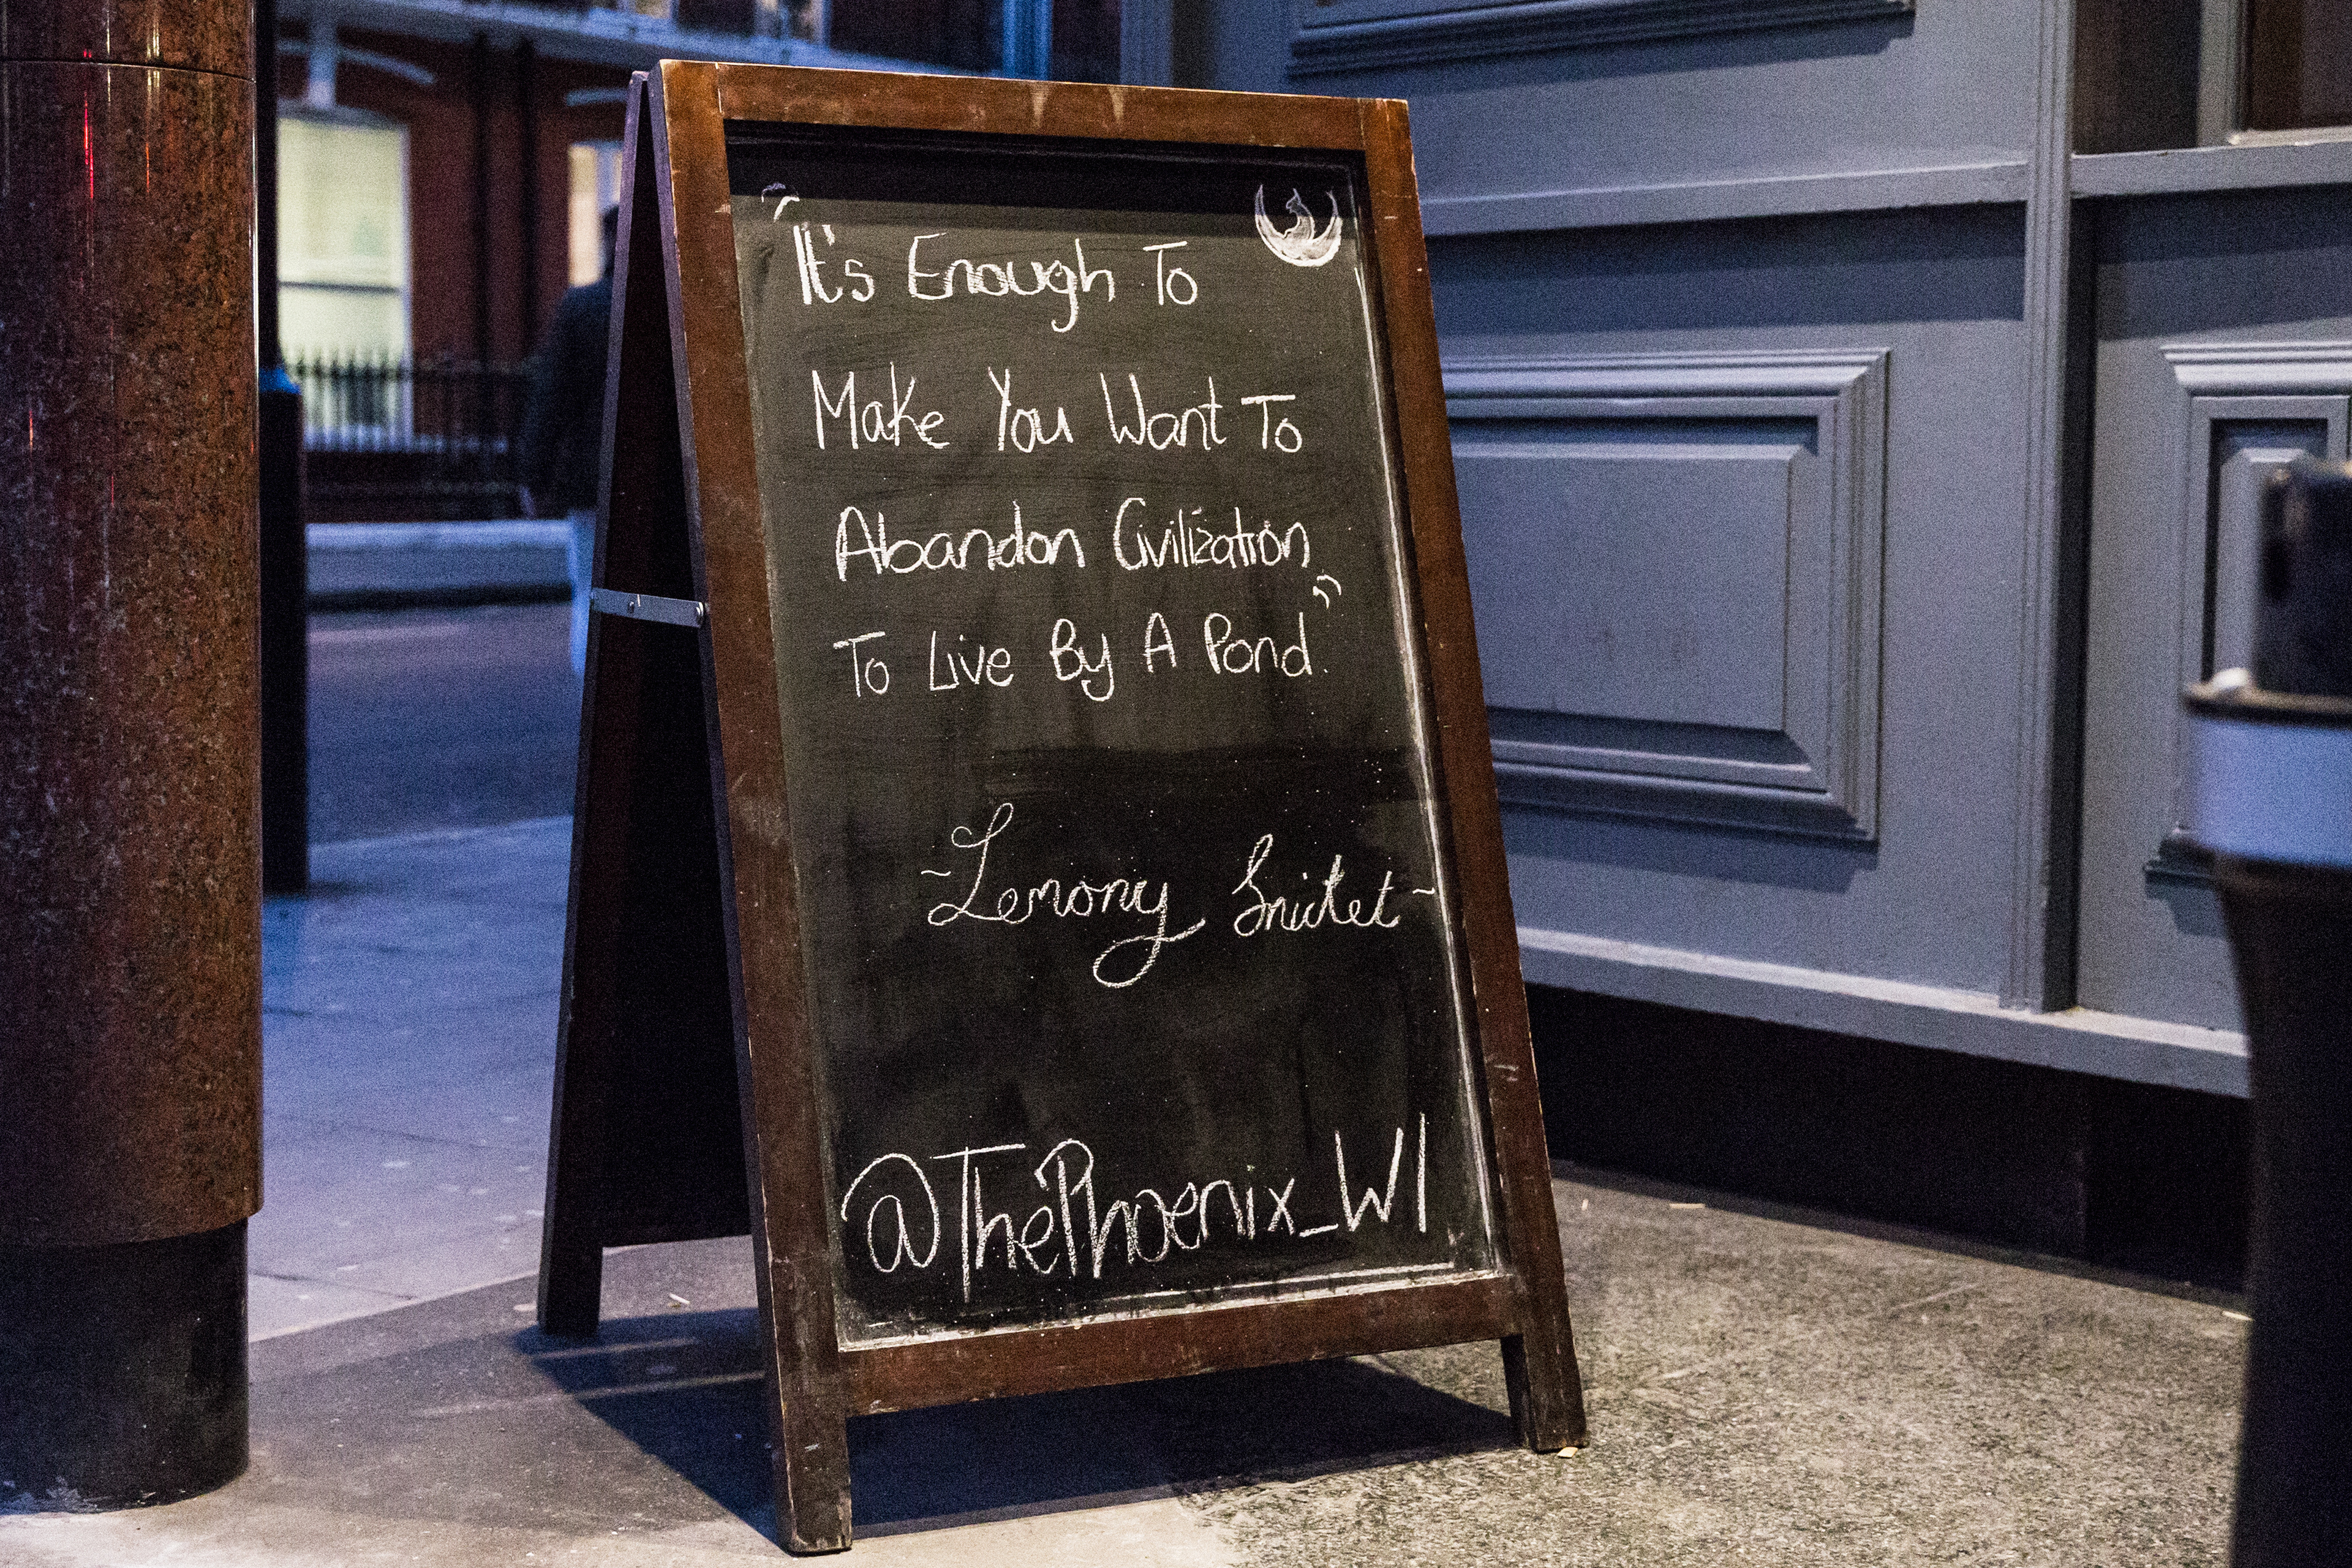 "It's Enough To
Make You Want To
Abandon Civilization
To Live By A Pond."
~Lemony Snicket~
@ThePhoenix_W1